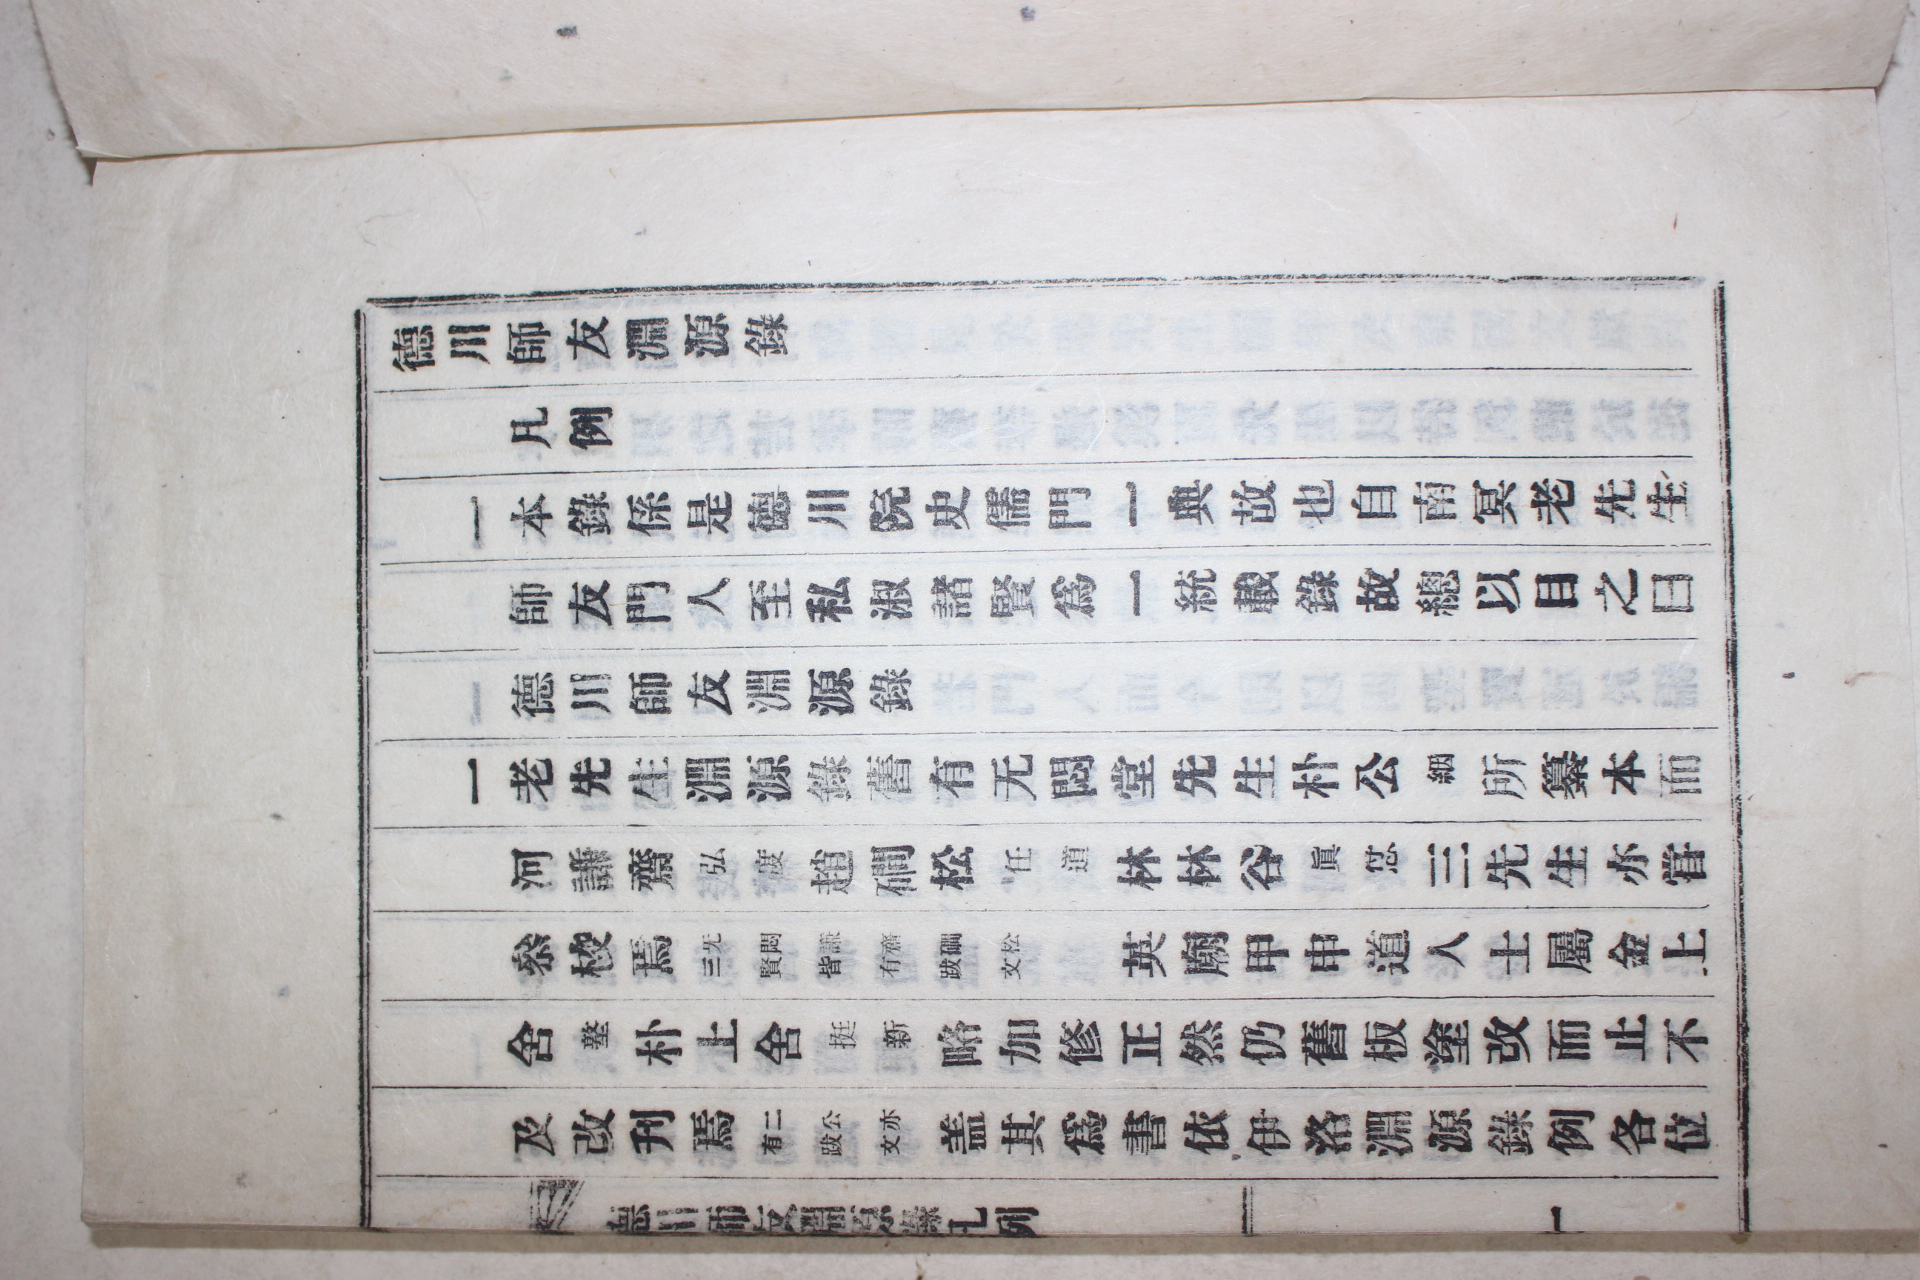 德川師友淵源錄
凡例
一本錄係是德川院史儒門一典故也自南冥老先生
師友門人至私淑諸賢爲一統載錄故總以目之曰
德川師友淵源錄
一老先生淵源錄舊有无悶堂先生朴公絪所纂本而
河謙齋弘度趙磵松任道林林谷眞怤三先生亦嘗
叅校焉无悶謙齋磵松三賢皆有跋文英廟甲申道人士屬金上
舍墪朴上舍挺新略加修正然仍舊板塗改而止不
及改刊焉二公亦有跋文盖其爲書依伊洛淵源錄例各位
德川師友淵源錄凡例
一